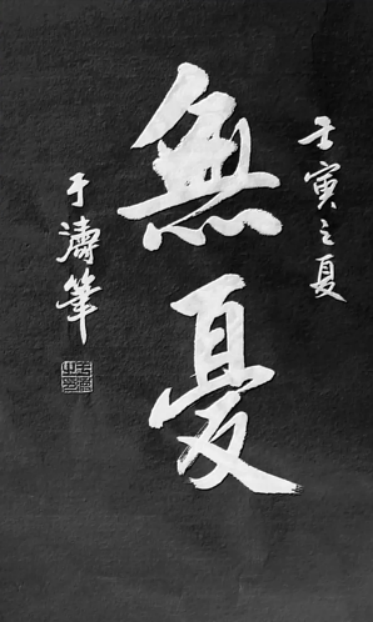 壬寅之夏
無憂
于濤筆